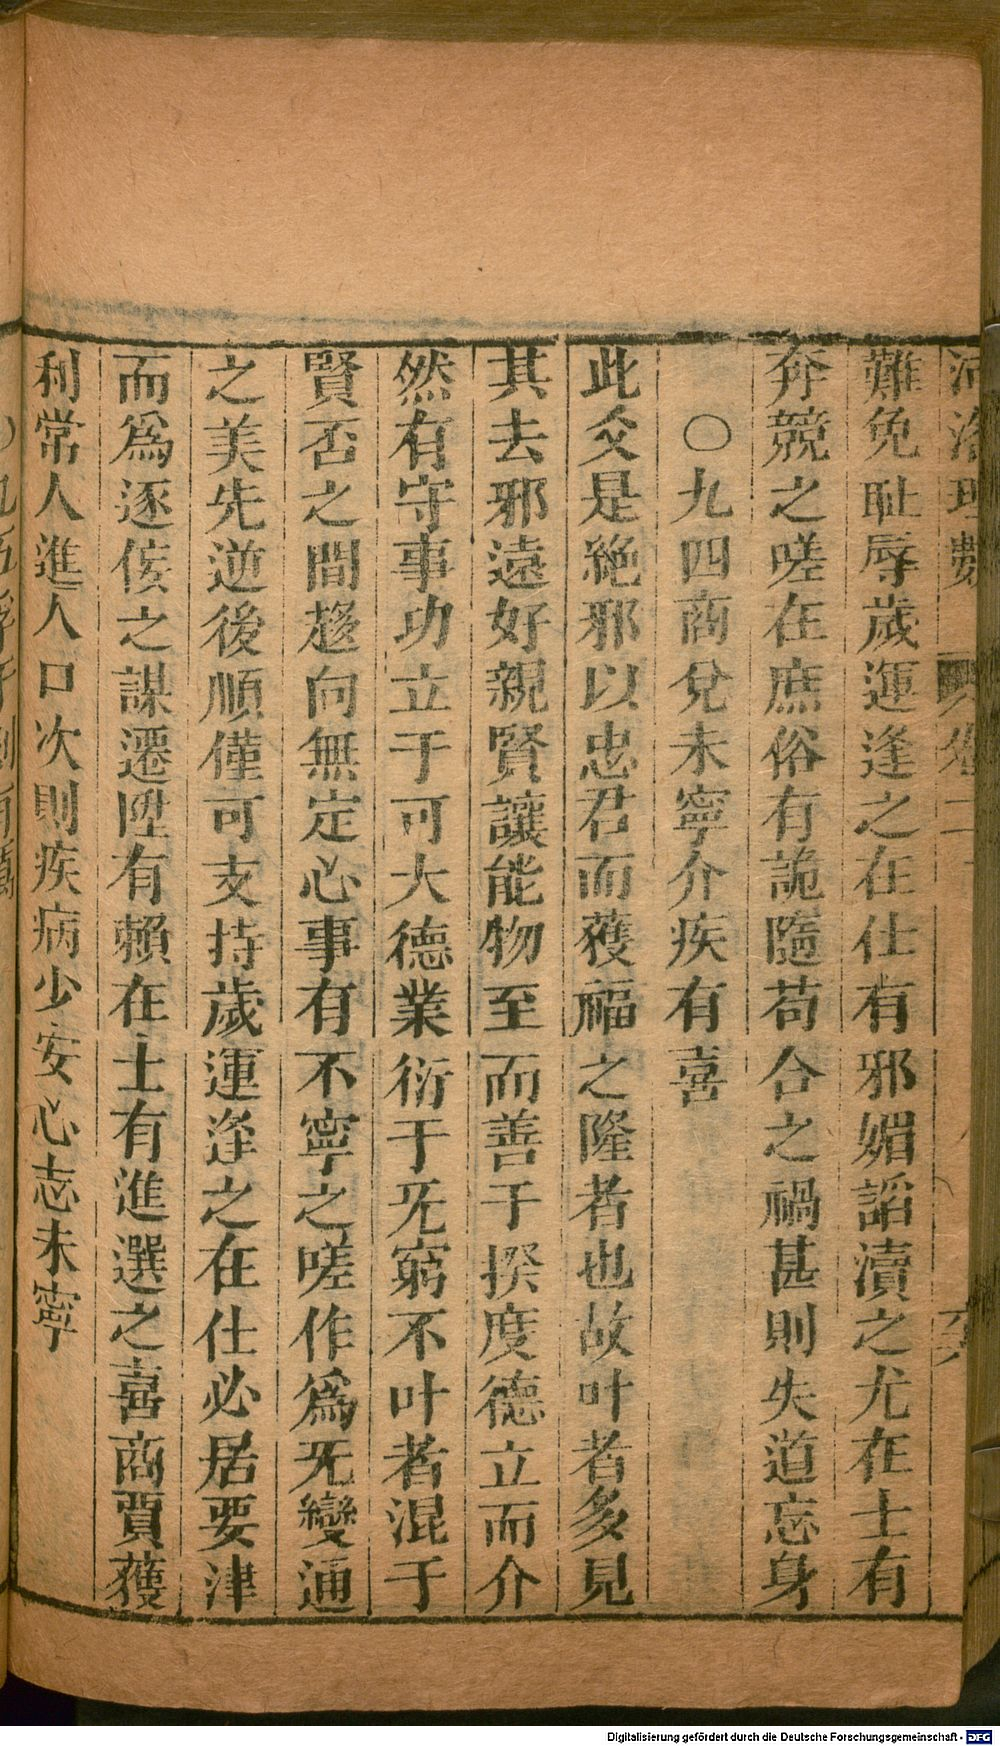 河洛理數 卷二 六六
難免耻辱歲運逢之在仕有邪媚謟瀆之尤在士有
奔競之嗟在庶俗有詭隨苟合之禍甚則失道忘身
○九四商兌未寧介疾有喜
此爻是絕邪以忠君而獲福之隆者也故叶者多見
其去邪遠好親賢讓能物至而善于揆度德立而介
然有守事功立于可大德業衍于旡窮不叶者混于
賢否之間趍向無定心事有不寧之嗟作爲旡變通
之美先逆後順僅可支持歲運逢之在仕必居要津
而爲逐侫之謀遷陞有賴在士有進選之喜商賈獲
利常人進人口次則疾病少安心志未寧
Digitalisierung gefördert durch die Deutsche Forschungsgemeinschaft - DFG